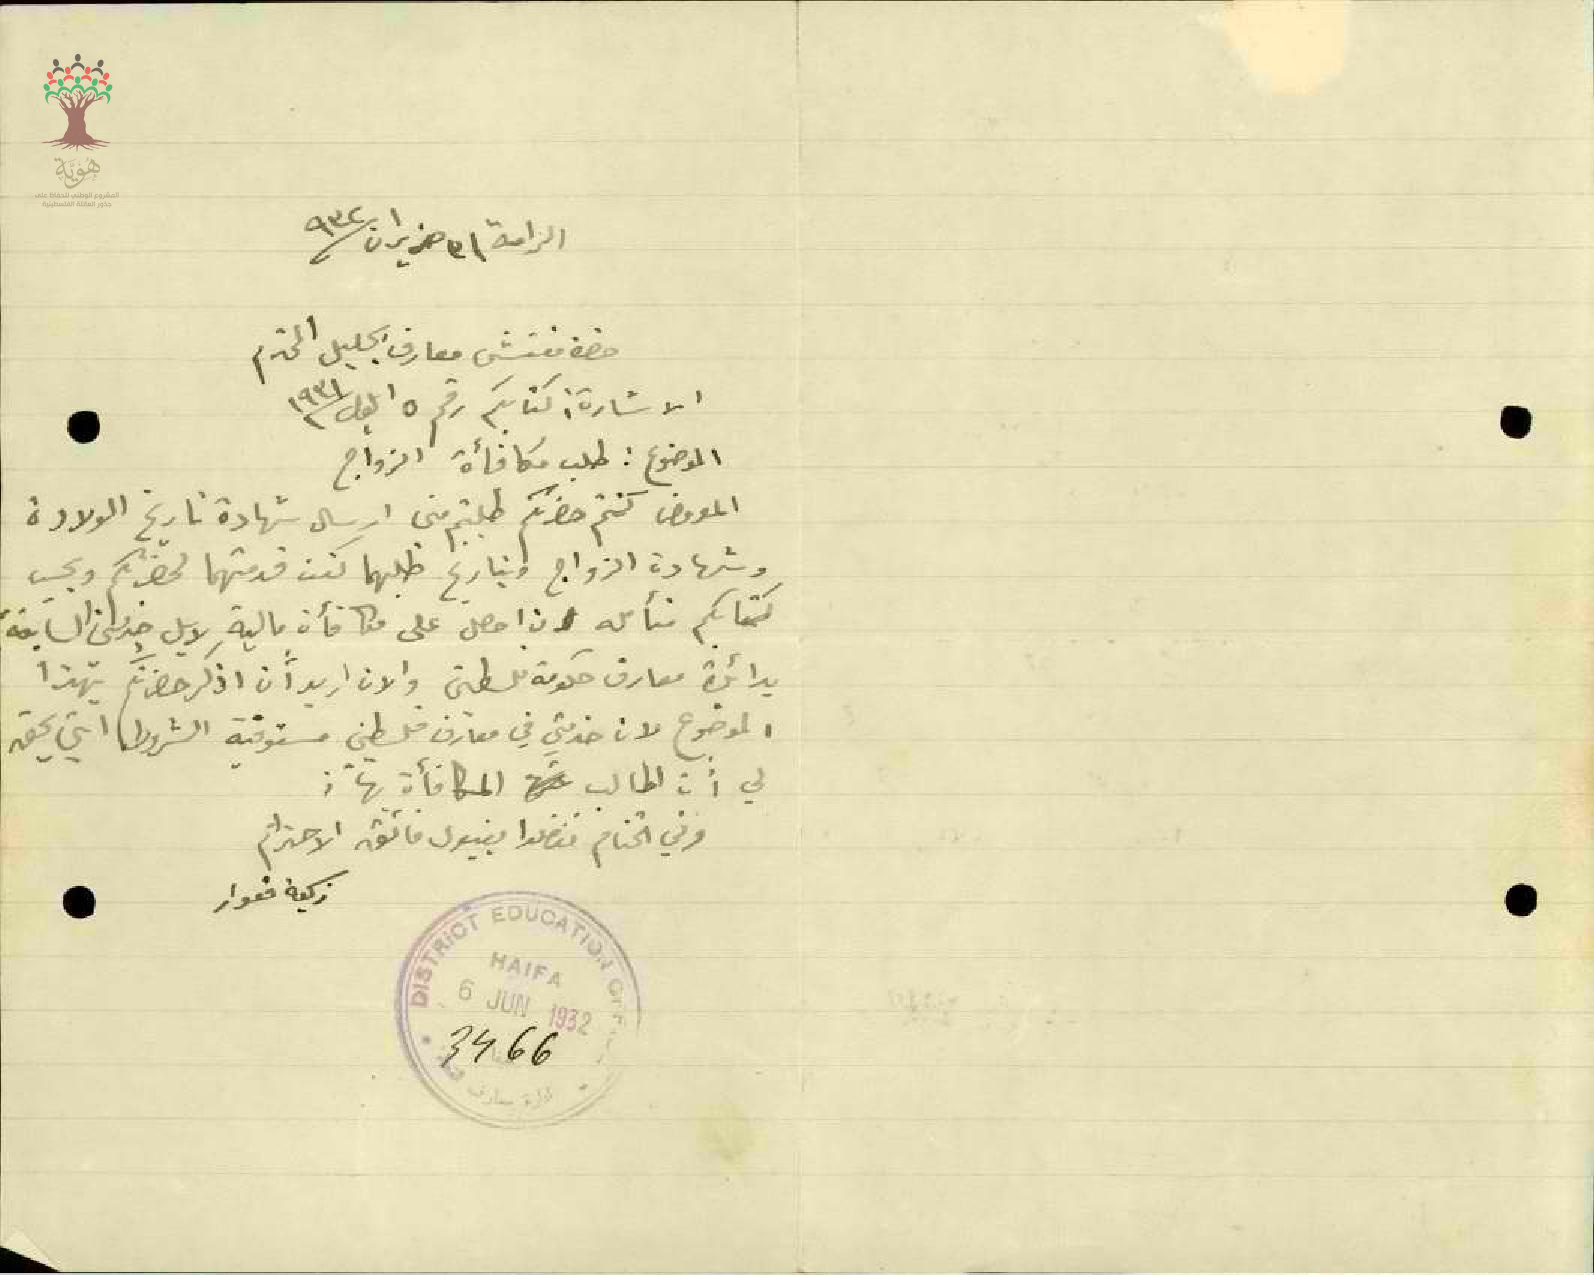 هوية
المشروع الوطني للحفاظ على
جذور العائلة الفلسطينية
الرامة حزيران ٩٣٢
حضرة مفتش معارف الجليل المحترم
الاشارة: كتابكم رقم ٥ ايلول ١٩٣١
الموضوع: طلب مكافأة الزواج
المعروض كنتم حضرتكم طلبتم مني ارسال شهادة تاريخ الولادة
وشهادة الزواج وبتاريخ طلبها كنت قدمتهما لحضرتكم وبحسب
كتابكم متأمله ان احصل على مكافأة مالية خدمتي السابقة
بدائرة معارف حكومة فلسطين والان اريد أن اذكر حضرتكم بهذا
الموضوع لان خدمتي في معارف فلسطين مستوفية الشروط التي يحق
لي أن اطالب المكافأة بها
وفي الختام تفضلوا بقبول فائق الاحترام
زكية قعوار
DISTRICT EDUCATION OFFICE
HAIFA
6 JUN 1932
3466
ادارة معارف